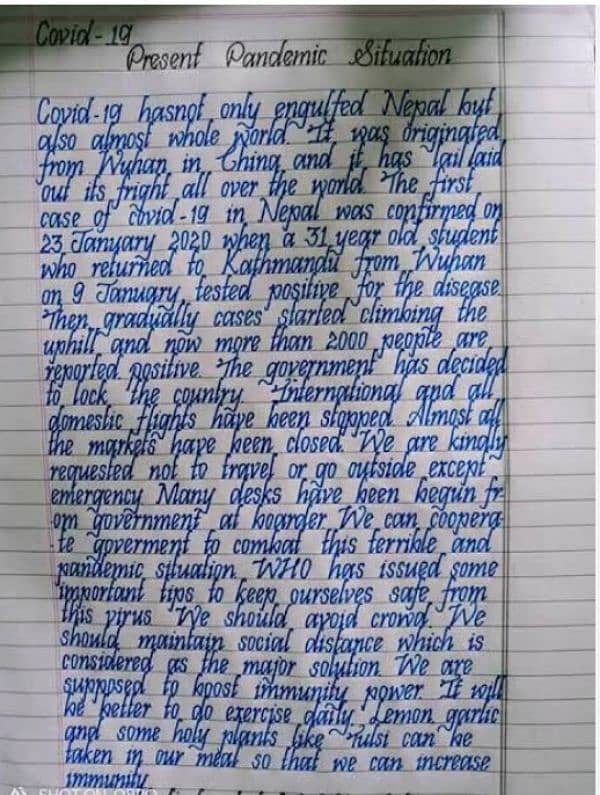 Covid-19
Present Pandemic Situation
Covid-19 hasnot only engulfed Nepal but
also almost whole world. It was originated
from Wuhan in China and it has laid
out its fright all over the world. The first
case of covid-19 in Nepal was confirmed on
23 January 2020 when a 31 year old student
who returned to Kathmandu from Wuhan
on 9 January, tested positive for the disease.
Then, gradually cases started climbing the
uphill and now more than 2000 people are
reported positive. The government has decided
to lock the country. International and all
domestic flights have been stopped. Almost all
the markets have been closed. We are kindly
requested not to travel or go outside except
emergency. Many desks have been begun fr-
om government at boarder. We can coopera-
-te goverment to combat this terrible and
pandemic situation. WHO has issued some
important tips to keep ourselves safe from
this virus. We should avoid crowd. We
should maintain social distance which is
considered as the major solution. We are
supposed to boost immunity power. It will
be better to do exercise daily. Lemon, garlic
and some holy plants like Tulsi can be
taken in our meal so that we can increase
immunity.
SHOT ON OPPO